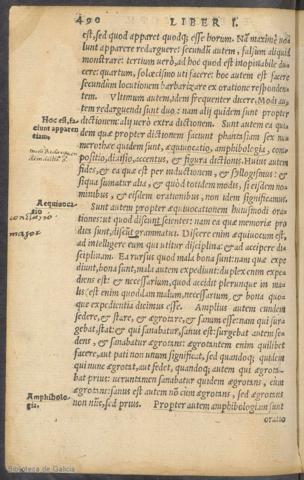 490 LIBER I.
est, sed quod apparet quodq; esse horum. Nā maximè uo
lunt apparere redarguere: secundū autem, falsum aliquid
monstrare: tertium uerò, ad hoc quod est inopinabile du
cere: quartum, solœcismo uti facere: hoc autem est facere
secundum locutionem barbarizare ex oratione responden
tem. Vltimum autem, idem frequenter dicere. Modi au
tem redarguendi sunt duo: nam alij quidem sunt propter
Hoc est, fa
ciunt apparen
tiam.
dictionem: alij uerò extra dictionem. Sunt autem ea qui
dem quæ propter dictionem faciunt phantasiam sex nu
mero: hæc quidem sunt, æquiuocatio, amphibologia, com
positio, diuisio, accentus, & figura dictionis. Huius autem
fides, & ea quæ est per inductionem, & syllogismus: &
siqua sumatur alia, & quòd totidem modis, si eisdem no
minibus, & eisdem orationibus, non idem significamus.
Aequiuoca
tio
Sunt autem propter æquiuocationem huiusmodi orati
ones: ut quod discunt scientes: nam ea quæ memoria pro
maior
dūs sunt, discūt grammatici. Discere enim æquiuocum est,
ad intelligere eum qui utitur disciplina: & ad accipere di
sciplinam. Ea rursus quod mala bona sunt: nam quæ expe
diunt, bona sunt, mala autem expediunt: duplex enim expe
diens est: & necessarium, quod accidit plerunque in ma
lis: est enim quoddam malum, necessarium, & bona quo
que expedientia dicimus esse. Amplius autem eundem
sedere, & stare, & ægrotare, & sanum esse: nam qui sur
gebat, stat: & qui sanabatur, sanus est: surgebat autem se
dens, & sanabatur ægrotans: ægrotantem enim quilibet
facere, aut pati non unum significat, sed quandoq; quidem
qui nunc ægrotat, aut sedet, quandoq; autem qui ægrota-
bat prius: ueruntamen sanabatur quidem ægrotans, cum
ægrotans: sanus est autem nō cum ægrotans, sed ægrotans
Amphibolo-
gia.
non nūc, sed prius. Propter autem amphibologiam sunt
oratio
Biblioteca de Galicia